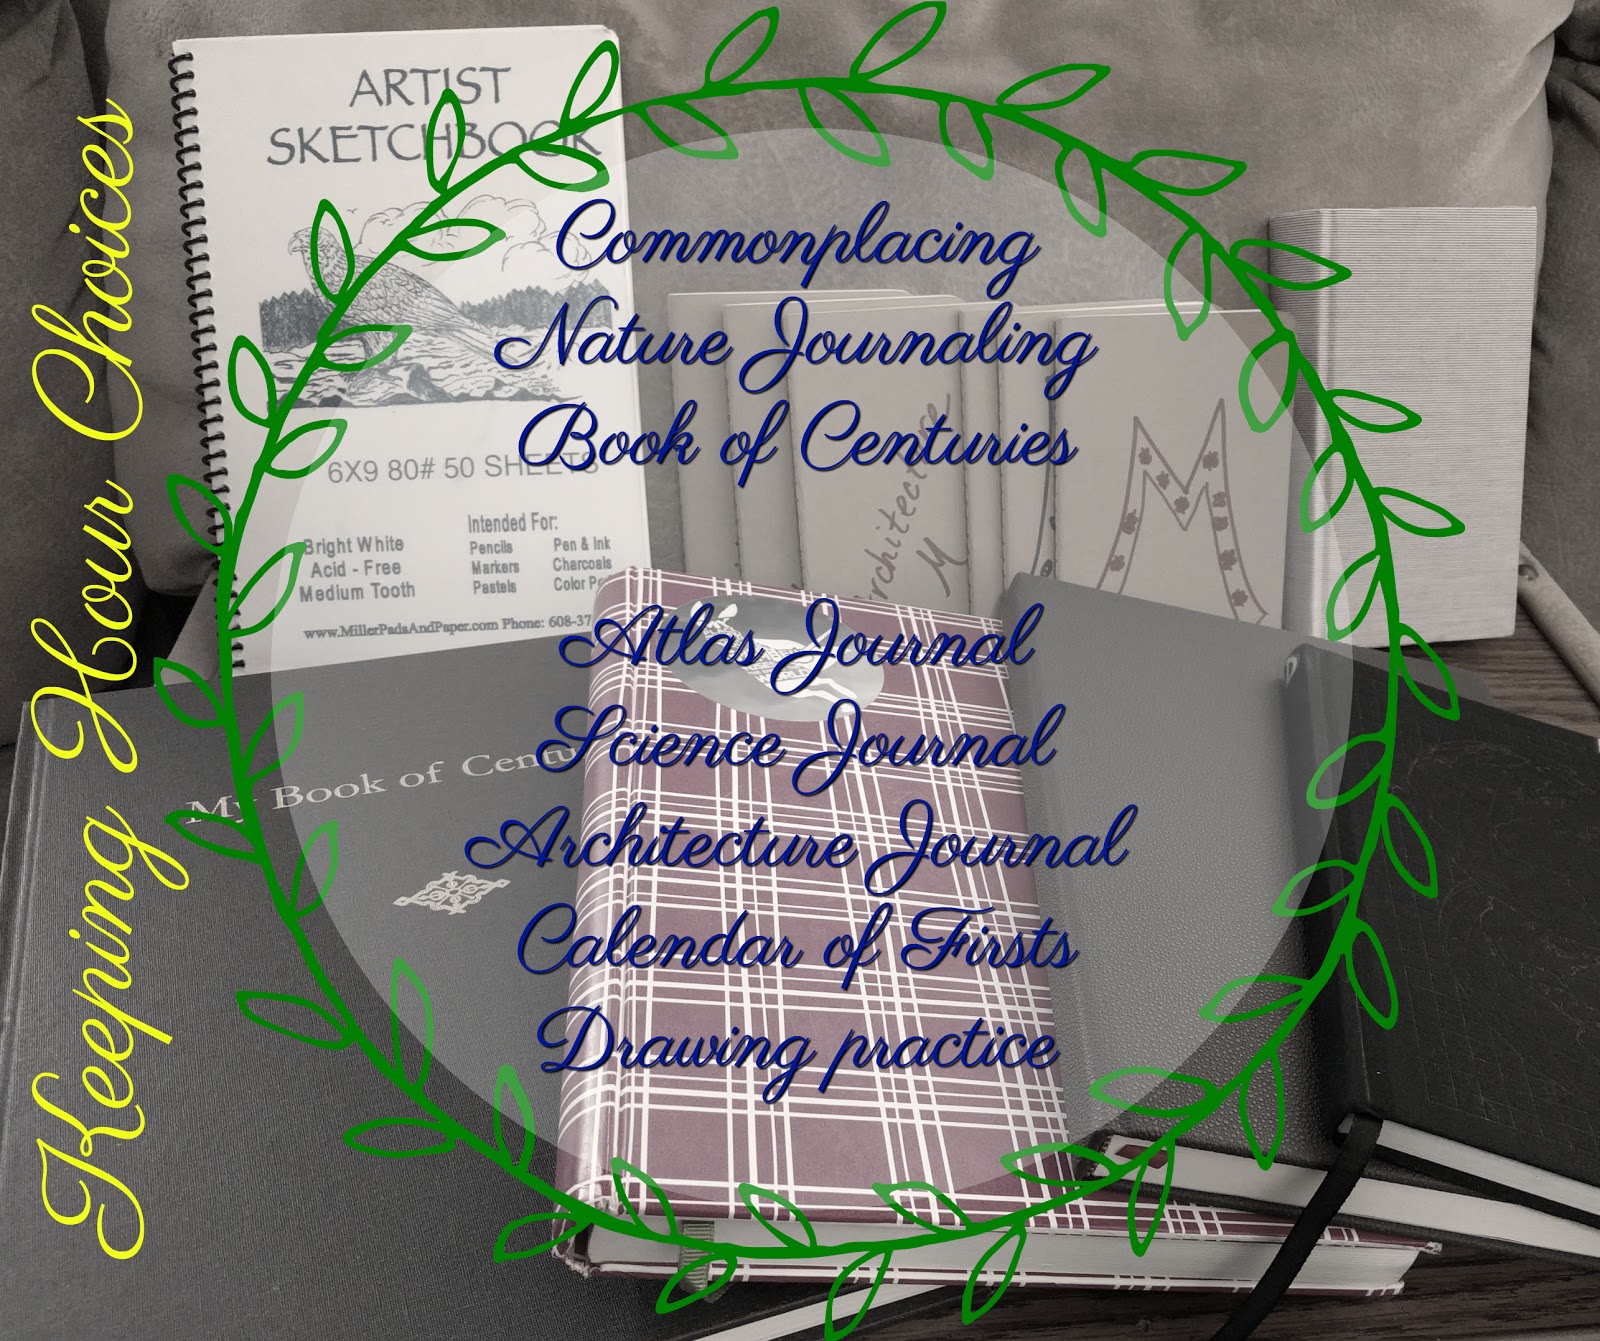 Keeping Hour Choices
ARTIST
SKETCHBOOK
6X9 80# 50 SHEETS
Intended For:
Bright White
Acid - Free
Medium Tooth
Pencils
Markers
Pastels
Pen & Ink
Charcoals
Color
www.MillerPadsAndPaper.com Phone: 608-37
Commonplacing
Nature Journaling
Book of Centuries
Architecture
M
M
Atlas Journal
Science Journal
Architecture Journal
Calendar of Firsts
Drawing practice
My Book of Centu